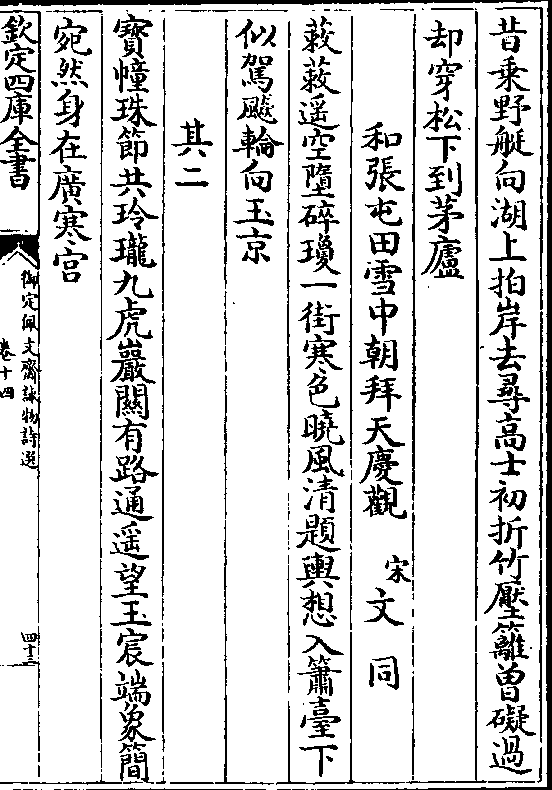 昔乗野艇向湖上拍岸去尋高士初折竹壓籬曽礙過
却穿松下到茅廬
和張屯田雪中朝拜天慶觀 宋 文同
蔌蔌遥空墮碎瓊一街寒色曉風清題輿想入簫臺下
似駕飈輪向玉京
其二
寶幢珠節共玲瓏九虎巖關有路通遥望玉宸端象簡
宛然身在廣寒宫
欽定四庫全書
御定佩文齋詠物詩選
卷十四
四十三